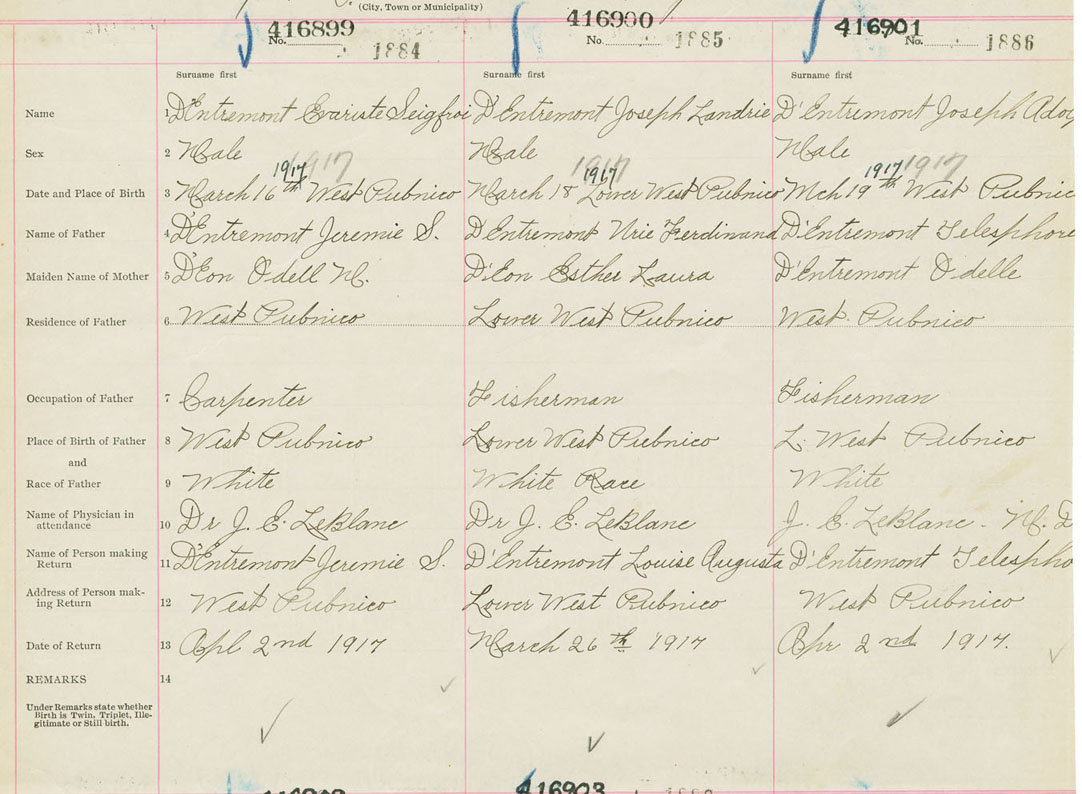 (City, Town or Municipality)
416899 416900 416901
No. 1884 No. 1885 No. 1886
Surname first Surname first Surname first
Name 1 D'Entremont Evariste Seigfroi D'Entremont Joseph Landrie D'Entremont Joseph
Sex 2 Male Male Male
1917 1917 1917 1917 1917 1917
Date and Place of Birth 3 March 16th West Pubnico March 18 Lower West Pubnico Mch 19th West Pubnic
Name of Father 4 D'Entremont Jeremie S. D'Entremont Urie Ferdinand D'Entremont Telesphore
Maiden Name of Mother 5 D'Eon Odell M. D'Eon Esther Laura D'Entremont Odelle
Residence of Father 6 West Pubnico Lower West Pubnico West Pubnico
Occupation of Father 7 Carpenter Fisherman Fisherman
Place of Birth of Father 8 West Pubnico Lower West Pubnico L. West Pubnico
and
Race of Father 9 White White Race White
Name of Physician in
attendance 10 Dr J. E. LeBlanc Dr J. E. LeBlanc J. E. LeBlanc - M. D
Name of Person making
Return 11 D'Entremont Jeremie S. D'Entremont Louise Augusta D'Entremont Telespho
Address of Person mak-
ing Return 12 West Pubnico Lower West Pubnico West Pubnico
Date of Return 13 Apl 2nd 1917 March 26th 1917 Apr 2nd 1917.
REMARKS 14
Under Remarks state whether
Birth is Twin, Triplet, Ille-
gitimate or Still birth.
416903